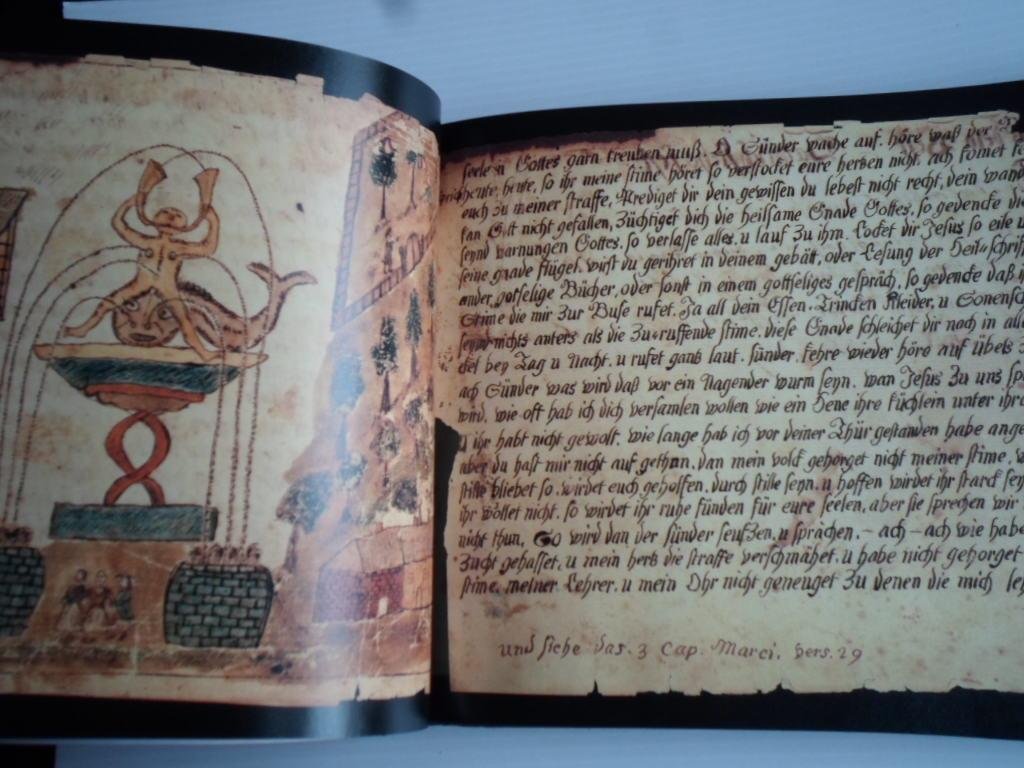 seele in Gottes garn treuben muß. O Sünder wache auf. höre waß der
heute, heute, so ihr meine stime höret so verstocket eure herßen nicht. ach komet
euch zu meiner straffe, Prediget dir dein gewissen du lebest nicht recht, dein wand
kan Gott nicht gefallen, Züchtiget dich die heilsame Gnade Gottes, so gedencke
seynd warnungen Gottes. so verlasse alles. u lauf Zu ihm. Locket dir Jesus so eile
seine gnade flügel. wirst du gerihret in deinem gebätt, oder Lesung der Heil schrif
ander gotselige Bücher, oder sonst in einem gottseliges gespräch, so gedencke daß
Stime die mir Zur Buse rufet. Ja all dein Essen. Trincken Kleider, u Sonensc
seynd nichts anters als die Zu ruffende stime. diese Gnade schleichet dir nach in
bey Tag u Nacht. u rufet ganß laut. sünder. kehre wieder höre auf übels
ach Sünder was wird daß vor ein Nagender wurm seyn. wan Jesus Zu uns
wird. wie oft hab ich dich versamlen wollen wie ein Hene ihre küchlein unter
u ihr habt nicht gewolt. wie lange hab ich vor deiner Thür gestanden habe ange
aber du hast mir nicht auf gethan. dan mein volck gehorget nicht meiner stime.
stille bliebet so. wirdet euch geholfen. durch stille seyn. u hoffen wirdet ihr starck
ihr wollet nicht. so wirdet ihr ruhe fünden für eure seelen, aber sie sprechen wir
nicht thun. So wird dan der sünder seufßen. u sprächen. – ach – ach wie habe
Zucht gehasset. u mein herß die straffe verschmähet. u habe nicht gehorget
stime. meiner Lehrer. u mein Ohr nicht geneuget Zu denen die mich
und siehe das. 3 Cap. Marci. vers. 29